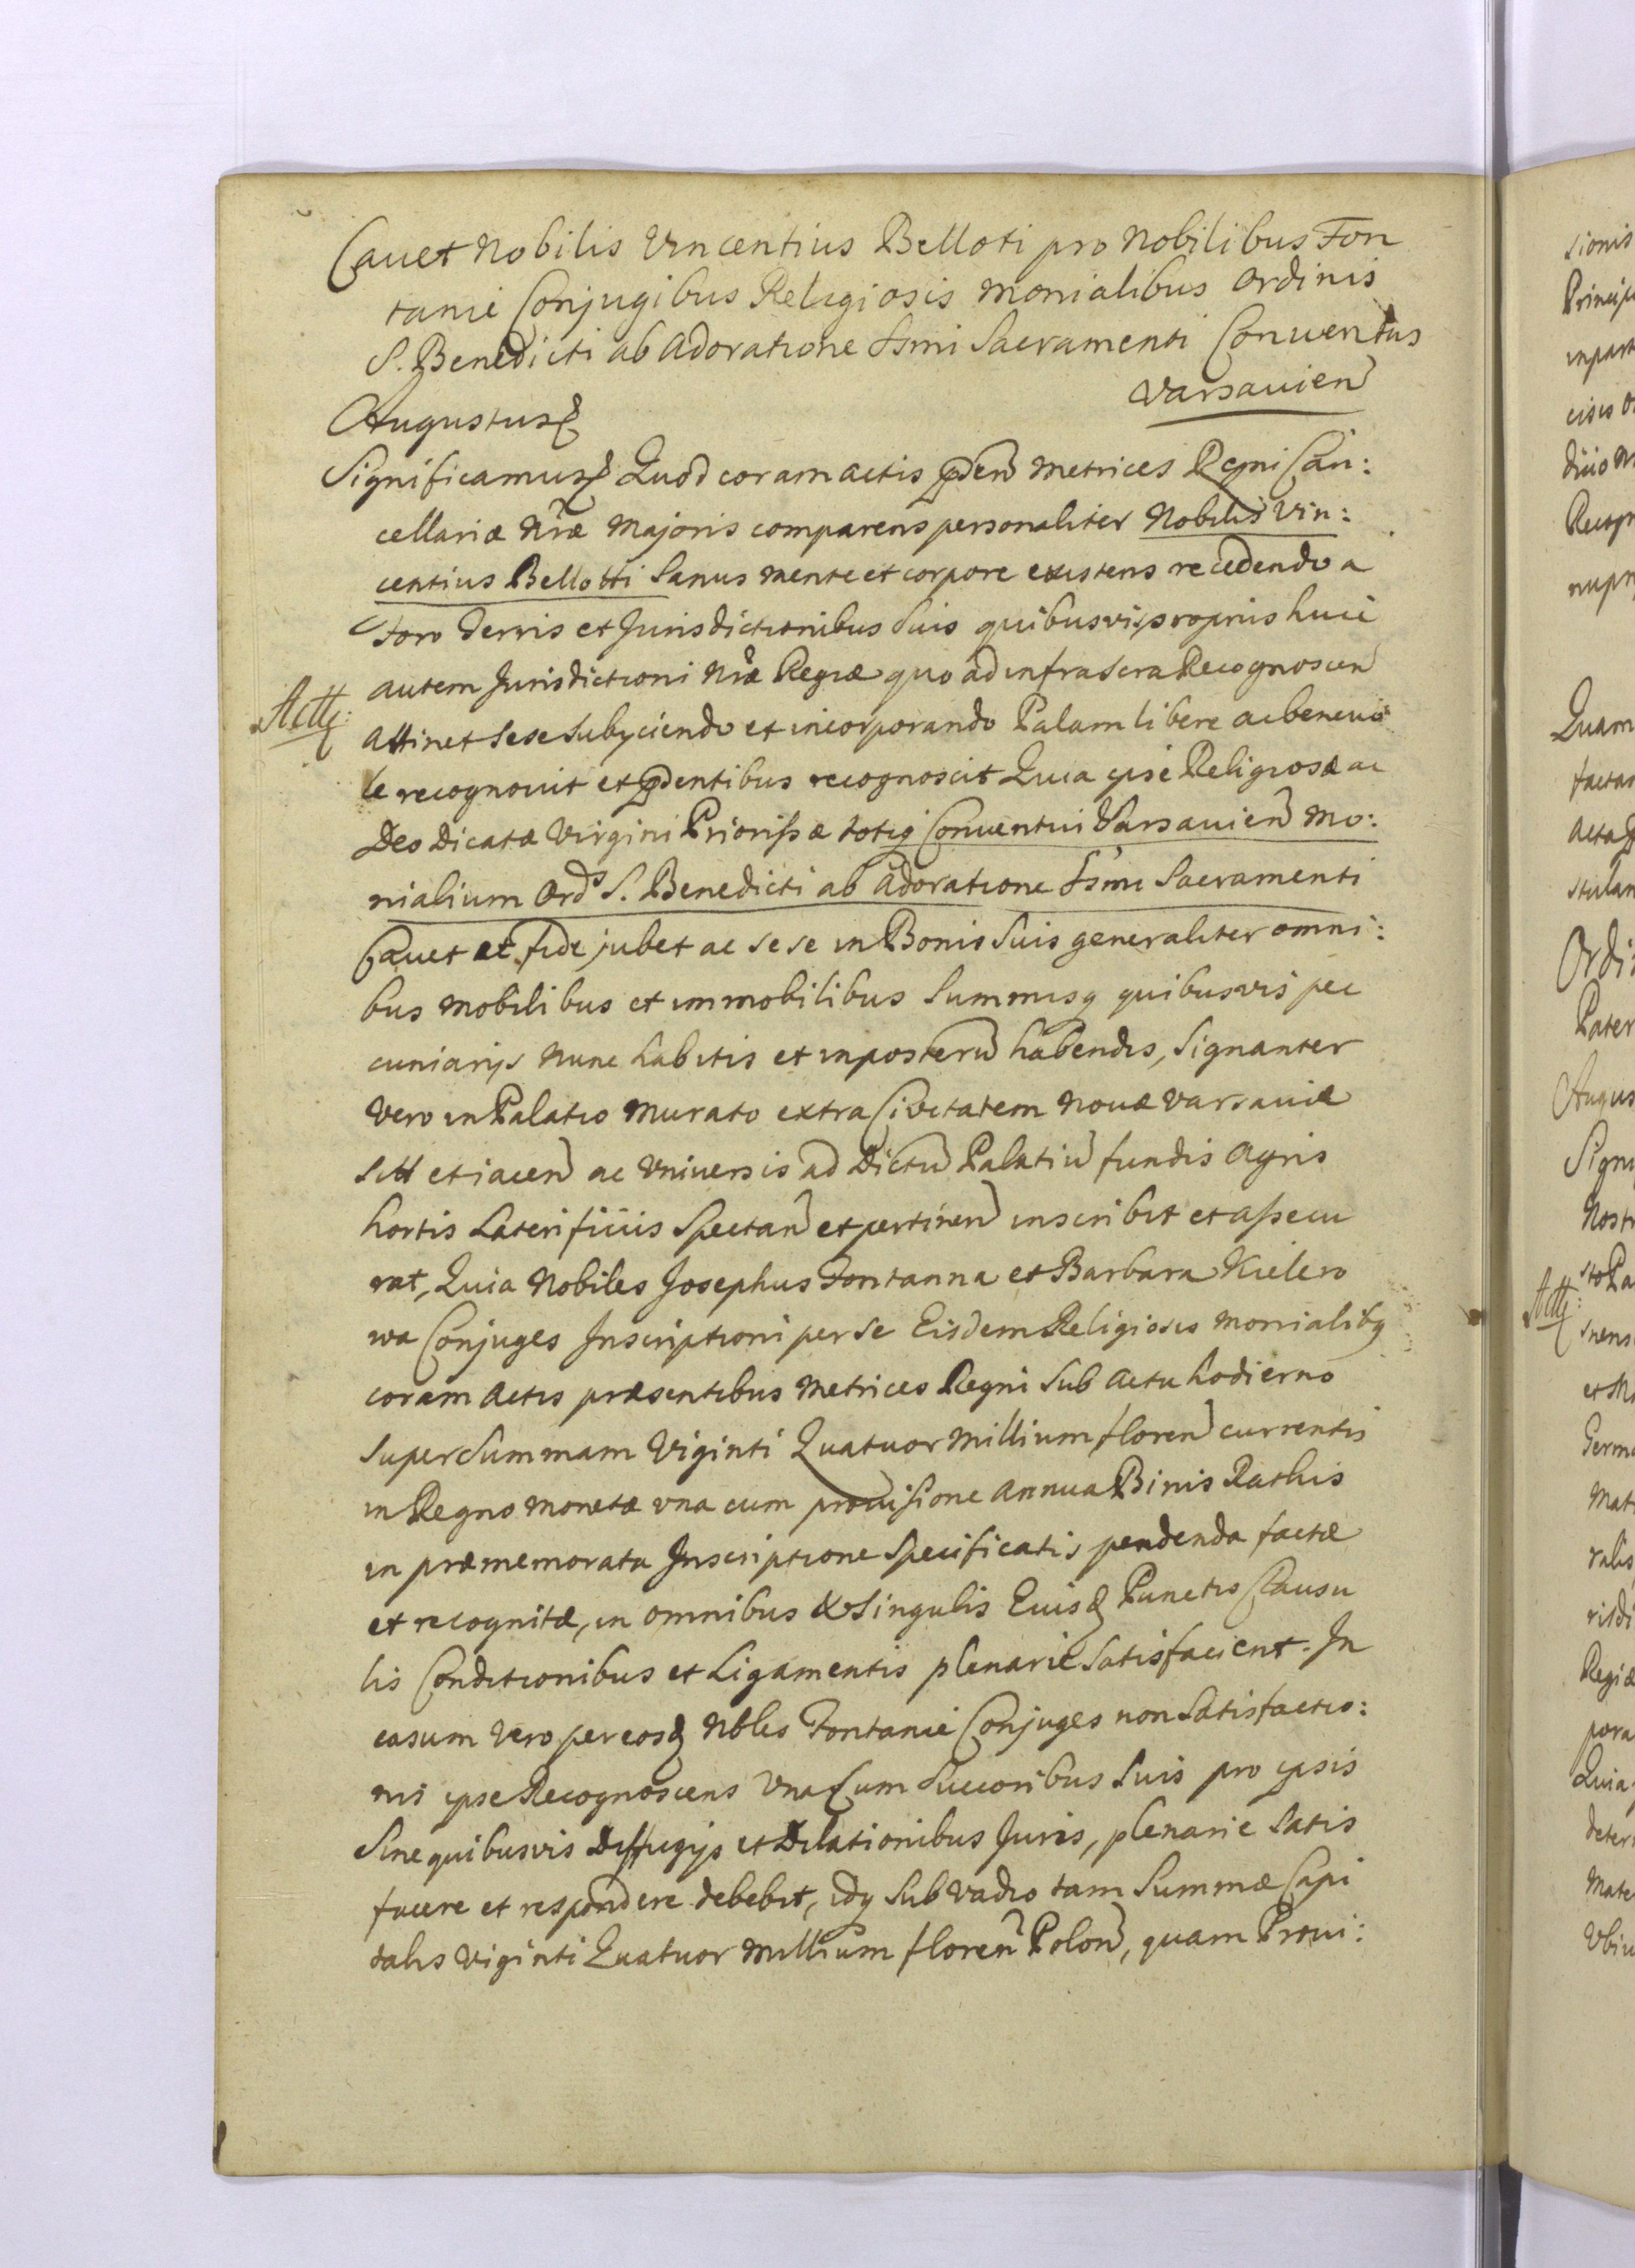 Cavet Nobilis Vincentius Belloti pro Nobilibus Fon
tanie Conjugibus Religiosis Monialibus Ordinis
S. Benedicti ab Adoratione Ssmi Sacramenti Conventus
Varsavien
Augustus
Significamus Quod coram actis pnden Metrices Regni Can:
cellariæ Nræ Majoris comparens personaliter Nobilis Vin:
centius Bellotti Sanus mente et corpore existens recedendo a
Foro Terris et Jurisdictionibus Suis quibusvis proprijs huic
Actt:
autem Jurisdictioni Nræ Regiæ quo ad infrascra Recognoscen
Attinet Sese Subijciendo et incorporando Palam libere ac benevo
le recognovit et pndentibus recognoscit Quia ipse Religiosæ ac
Deo Dicatæ Virgini Priorissæ totiq Conventui Varsavien Mo:
nialium Ords S. Benedicti ab Adoratione Ssmi Sacramenti
Cavet et fide jubet ac sese in Bonis Suis generaliter omni:
bus Mobilibus et immobilibus Summisq quibusvis pec
cuniarijs Nunc habitis et inposteru habendis, Signanter
Vero in Palatio Murato extra Civitatem Novæ Varsaviæ
Sitt et iacen ac Universis ad Dictu Palatiu fundis Agris
hortis Laterificiis Spectan et pertinen inscribit et assecu
rat, Quia Nobiles Josephus Fontanna et Barbara Kielero
wa Conjuges Inscriptioni per se Eisdem Religiosis Monialibq
coram Actis præsentibus Metrices Regni Sub Actu hodierno
Super Summam Viginti Quatuor Millium floren currentis
in Regno Monetæ una cum provisione Annua Binis Rathis
in præmemorata Inscriptione Specificatis pendenda factæ
et recognitæ, in omnibus & Singulis Eiusd Punctis Clausu
lis Conditionibus et Ligamentis plenarie Satisfacient. In
casum Vero per eosd Nbles Fontanie Conjuges non Satisfactio:
nis ipse Recognoscens Una Cum Succoribus Suis pro ipsis
Sine quibusvis Diffugijs et Dilationibus Juris, plenarie Satis
facere et respondere debebit, idq Sub Vadio tam Summæ Capi
talis Viginti Quatuor Millium floren Polon, quam Provi: